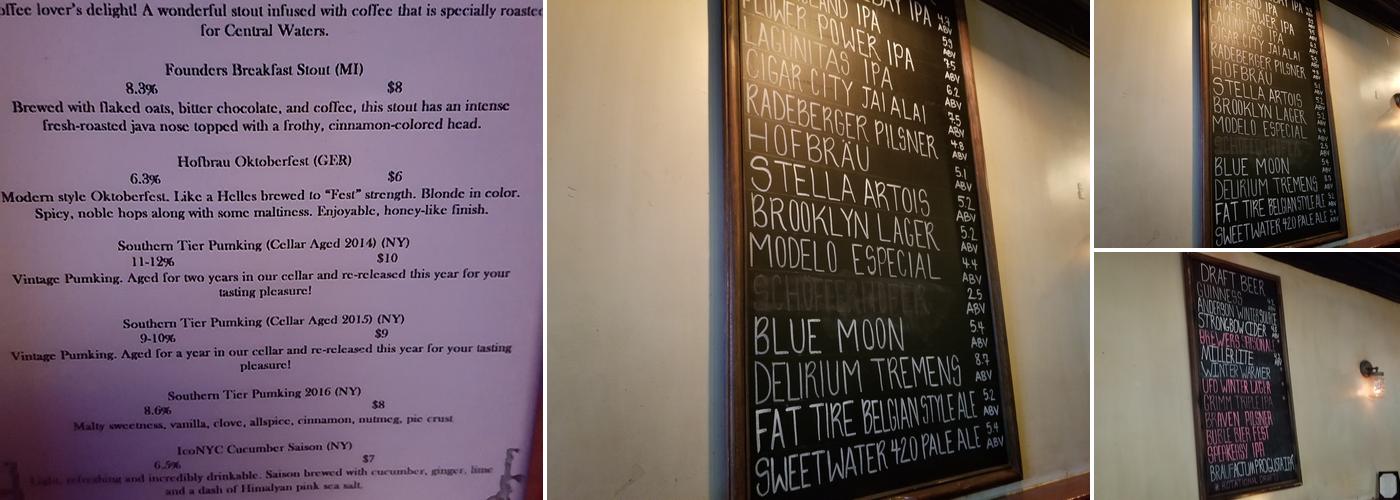 coffee lover's delight! A wonderful stout infused with coffee that is specially roasted
for Central Waters.
Founders Breakfast Stout (MI)
8.3% $8
Brewed with flaked oats, bitter chocolate, and coffee, this stout has an intense
fresh-roasted java nose topped with a frothy, cinnamon-colored head.
Hofbrau Oktoberfest (GER)
6.3% $6
Modern style Oktoberfest. Like a Helles brewed to "Fest" strength. Blonde in color.
Spicy, noble hops along with some maltiness. Enjoyable, honey-like finish.
Southern Tier Pumking (Cellar Aged 2014) (NY)
11-12% $10
Vintage Pumking. Aged for two years in our cellar and re-released this year for your
tasting pleasure!
Southern Tier Pumking (Cellar Aged 2015) (NY)
9-10% $9
Vintage Pumking. Aged for a year in our cellar and re-released this year for your tasting
pleasure!
Southern Tier Pumking 2016 (NY)
8.6% $8
Malty sweetness, vanilla, clove, allspice, cinnamon, nutmeg, pie crust
IcoNYC Cucumber Saison (NY)
6.5% $7
Light, refreshing and incredibly drinkable. Saison brewed with cucumber, ginger, lime
and a dash of Himalyan pink sea salt.
IPA 4.7 ABV
FLOWER POWER IPA 5.9 ABV
LAGUNITAS IPA 7.5 ABV
CIGAR CITY JAI ALAI 6.2 ABV
RADEBERGER PILSNER 7.5 ABV
HOFBRÄU 4.8 ABV
STELLA ARTOIS 5.1 ABV
BROOKLYN LAGER 5.2 ABV
MODELO ESPECIAL 5.2 ABV
4.4 ABV
SCHOFFERHOFER 2.5 ABV
BLUE MOON 5.4 ABV
DELIRIUM TREMENS 8.7 ABV
FAT TIRE BELGIAN STYLE ALE 5.2 ABV
SWEETWATER 420 PALE ALE 5.4 ABV
FLOWER POWER IPA
LAGUNITAS IPA
CIGAR CITY JAI ALAI
RADEBERGER PILSNER
HOFBRÄU
STELLA ARTOIS
BROOKLYN LAGER
MODELO ESPECIAL
BLUE MOON
DELIRIUM TREMENS
FAT TIRE BELGIAN STYLE ALE
SWEETWATER 420 PALE ALE
DRAFT BEER
GUINNESS
ANDERSON WINTER
STRONGBOW CIDER
BREWERS SEASONAL
MILLER LITE
WINTER WARMER
UFO WINTER LAGER
GRIMM TRIPLE IPA
BRAVEN PILSNER
BIER FEST
SPEAKEASY IPA
BRAUFACTUM PROGUSTA IPA
ROTATIONAL DRAFT